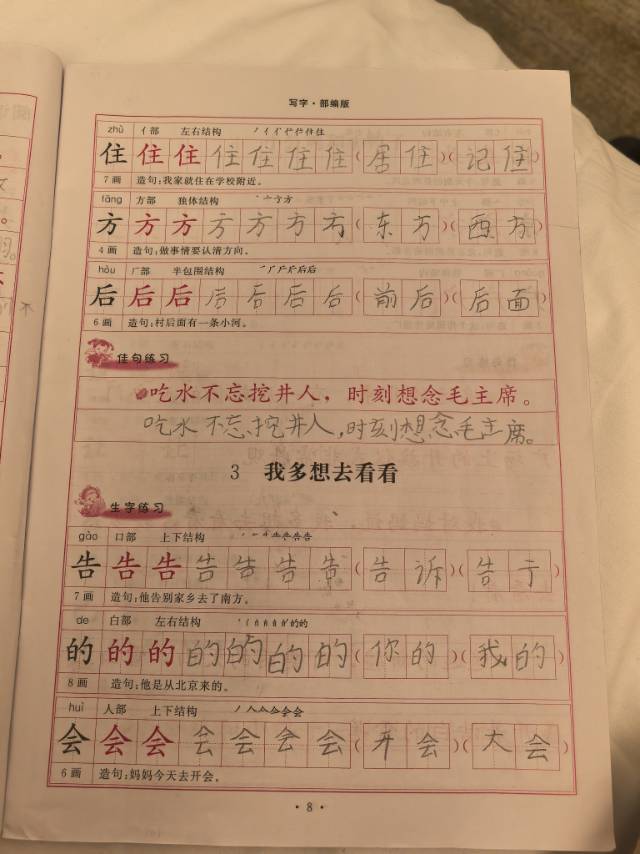 写字·部编版
zhù 亻部 左右结构
住 住 住 住 住 住 住 (居住)(记住)
7画 造句:我家就住在学校附近。
fāng 方部 独体结构
方 方 方 方 方 方 方 (东方)(西方)
4画 造句:做事情要认清方向。
hòu 厂部 半包围结构
后 后 后 后 后 后 后 (前后)(后面)
6画 造句:村后面有一条小河。
佳句练习
吃水不忘挖井人，时刻想念毛主席。
吃水不忘挖井人,时刻想念毛主席。
3 我多想去看看
生字练习
gào 口部 上下结构
告 告 告 告 告 告 告 (告诉)(告于)
7画 造句:他告别家乡去了南方。
de 白部 左右结构
的 的 的 的 的 的 的 (你的)(我的)
8画 造句:他是从北京来的。
huì 人部 上下结构
会 会 会 会 会 会 会 (开会)(大会)
6画 造句:妈妈今天去开会。
·8·